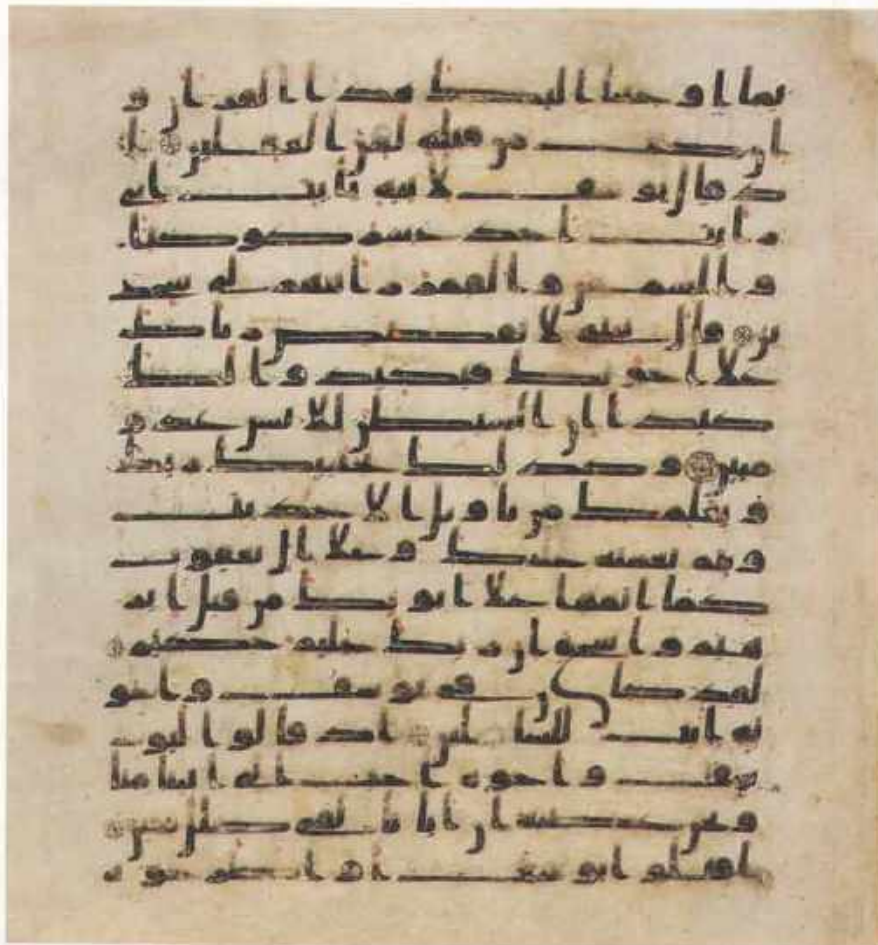 بما اوحينا اليك هذا القران و
ان كنت من قبله لمن الغفلين ا
ذ قال يوسف لابيه يابت اني
رايت احد عشر كوكبا
و الشمس و القمر رايتهم لي سجد
ين قال يبني لا تقصص رياك
على اخوتك فيكيدوا لك
كيدا ان الشيطن للانسن عدو
مبين و كذلك يجتبيك ربك
و يعلمك من تاويل الاحديث
و يتم نعمته عليك و على ال يعقوب
كما اتمها على ابويك من قبل ابر
هيم و اسحق ان ربك عليم حكيم
لقد كان في يوسف و اخو
ته ايت للسايلين اذ قالوا ليو
سف و اخوه احب الى ابينا منا
و نحن عصبة ان ابانا لفي ضلل مبين
اقتلوا يوسف او اطرحوه